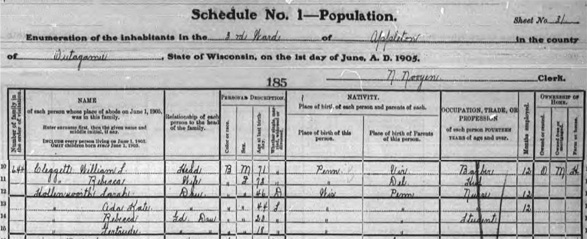 Schedule No. 1—Population.
Sheet No. 31
Enumeration of the Inhabitants in the 3rd Ward of Appleton in the county
of Outagamie, State of Wisconsin, on the 1st day of June, A. D. 1905.
185
N Nooyen Clerk.
Number of family in the order of visitation.
NAME
of each person whose place of abode on June 1, 1905, was in this family.
Enter surname first, then the given name and middle initial, if any.
Include every person living on June 1, 1905. Omit children born since June 1, 1905.
Relationship of each person to the head of the family.
PERSONAL DESCRIPTION.
Color or race.
Sex.
Age at last birthday.
NATIVITY.
Place of birth of each person and parents of each.
Place of birth of this person.
Place of birth of Parents of this person.
OCCUPATION, TRADE, OR PROFESSION
of each person FOURTEEN YEARS of age and over.
Months employed.
OWNERSHIP OF HOME.
10 644 Cleggett William S. Head B M 71 " Penn Vir Barber 12 O M H
11 " Rebeca Wife " F 78 " " Del
12 Hollenworth Sarah Dau " " 46 D Wis Penn Nurse 12
13 Ada Kate " " " 44 S " " 12
14 Rebeca Gd. Dau " " 20 " " " Student
15 Gertrude " " " 18 " " "